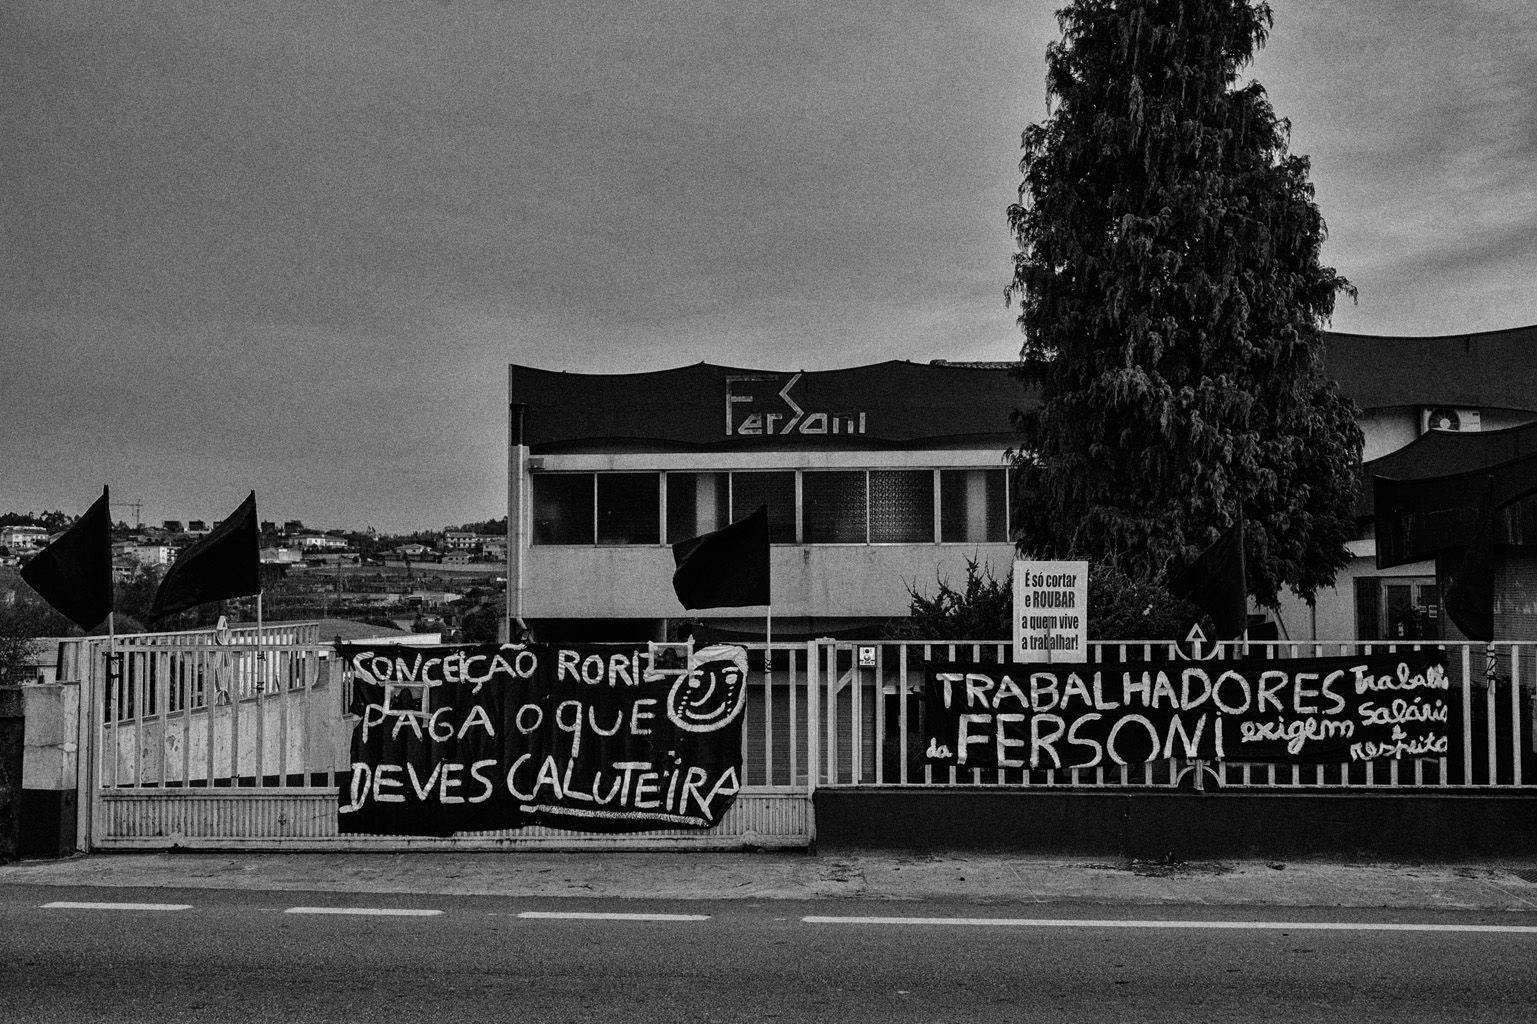 FerSoni
É só cortar
e ROUBAR
a quem vive
a trabalhar!
CONCEIÇÃO RORIZ
PAGA O QUE
DEVES CALUTEIRA
TRABALHADORES
da FERSONI exigem
Salário
e
respeito